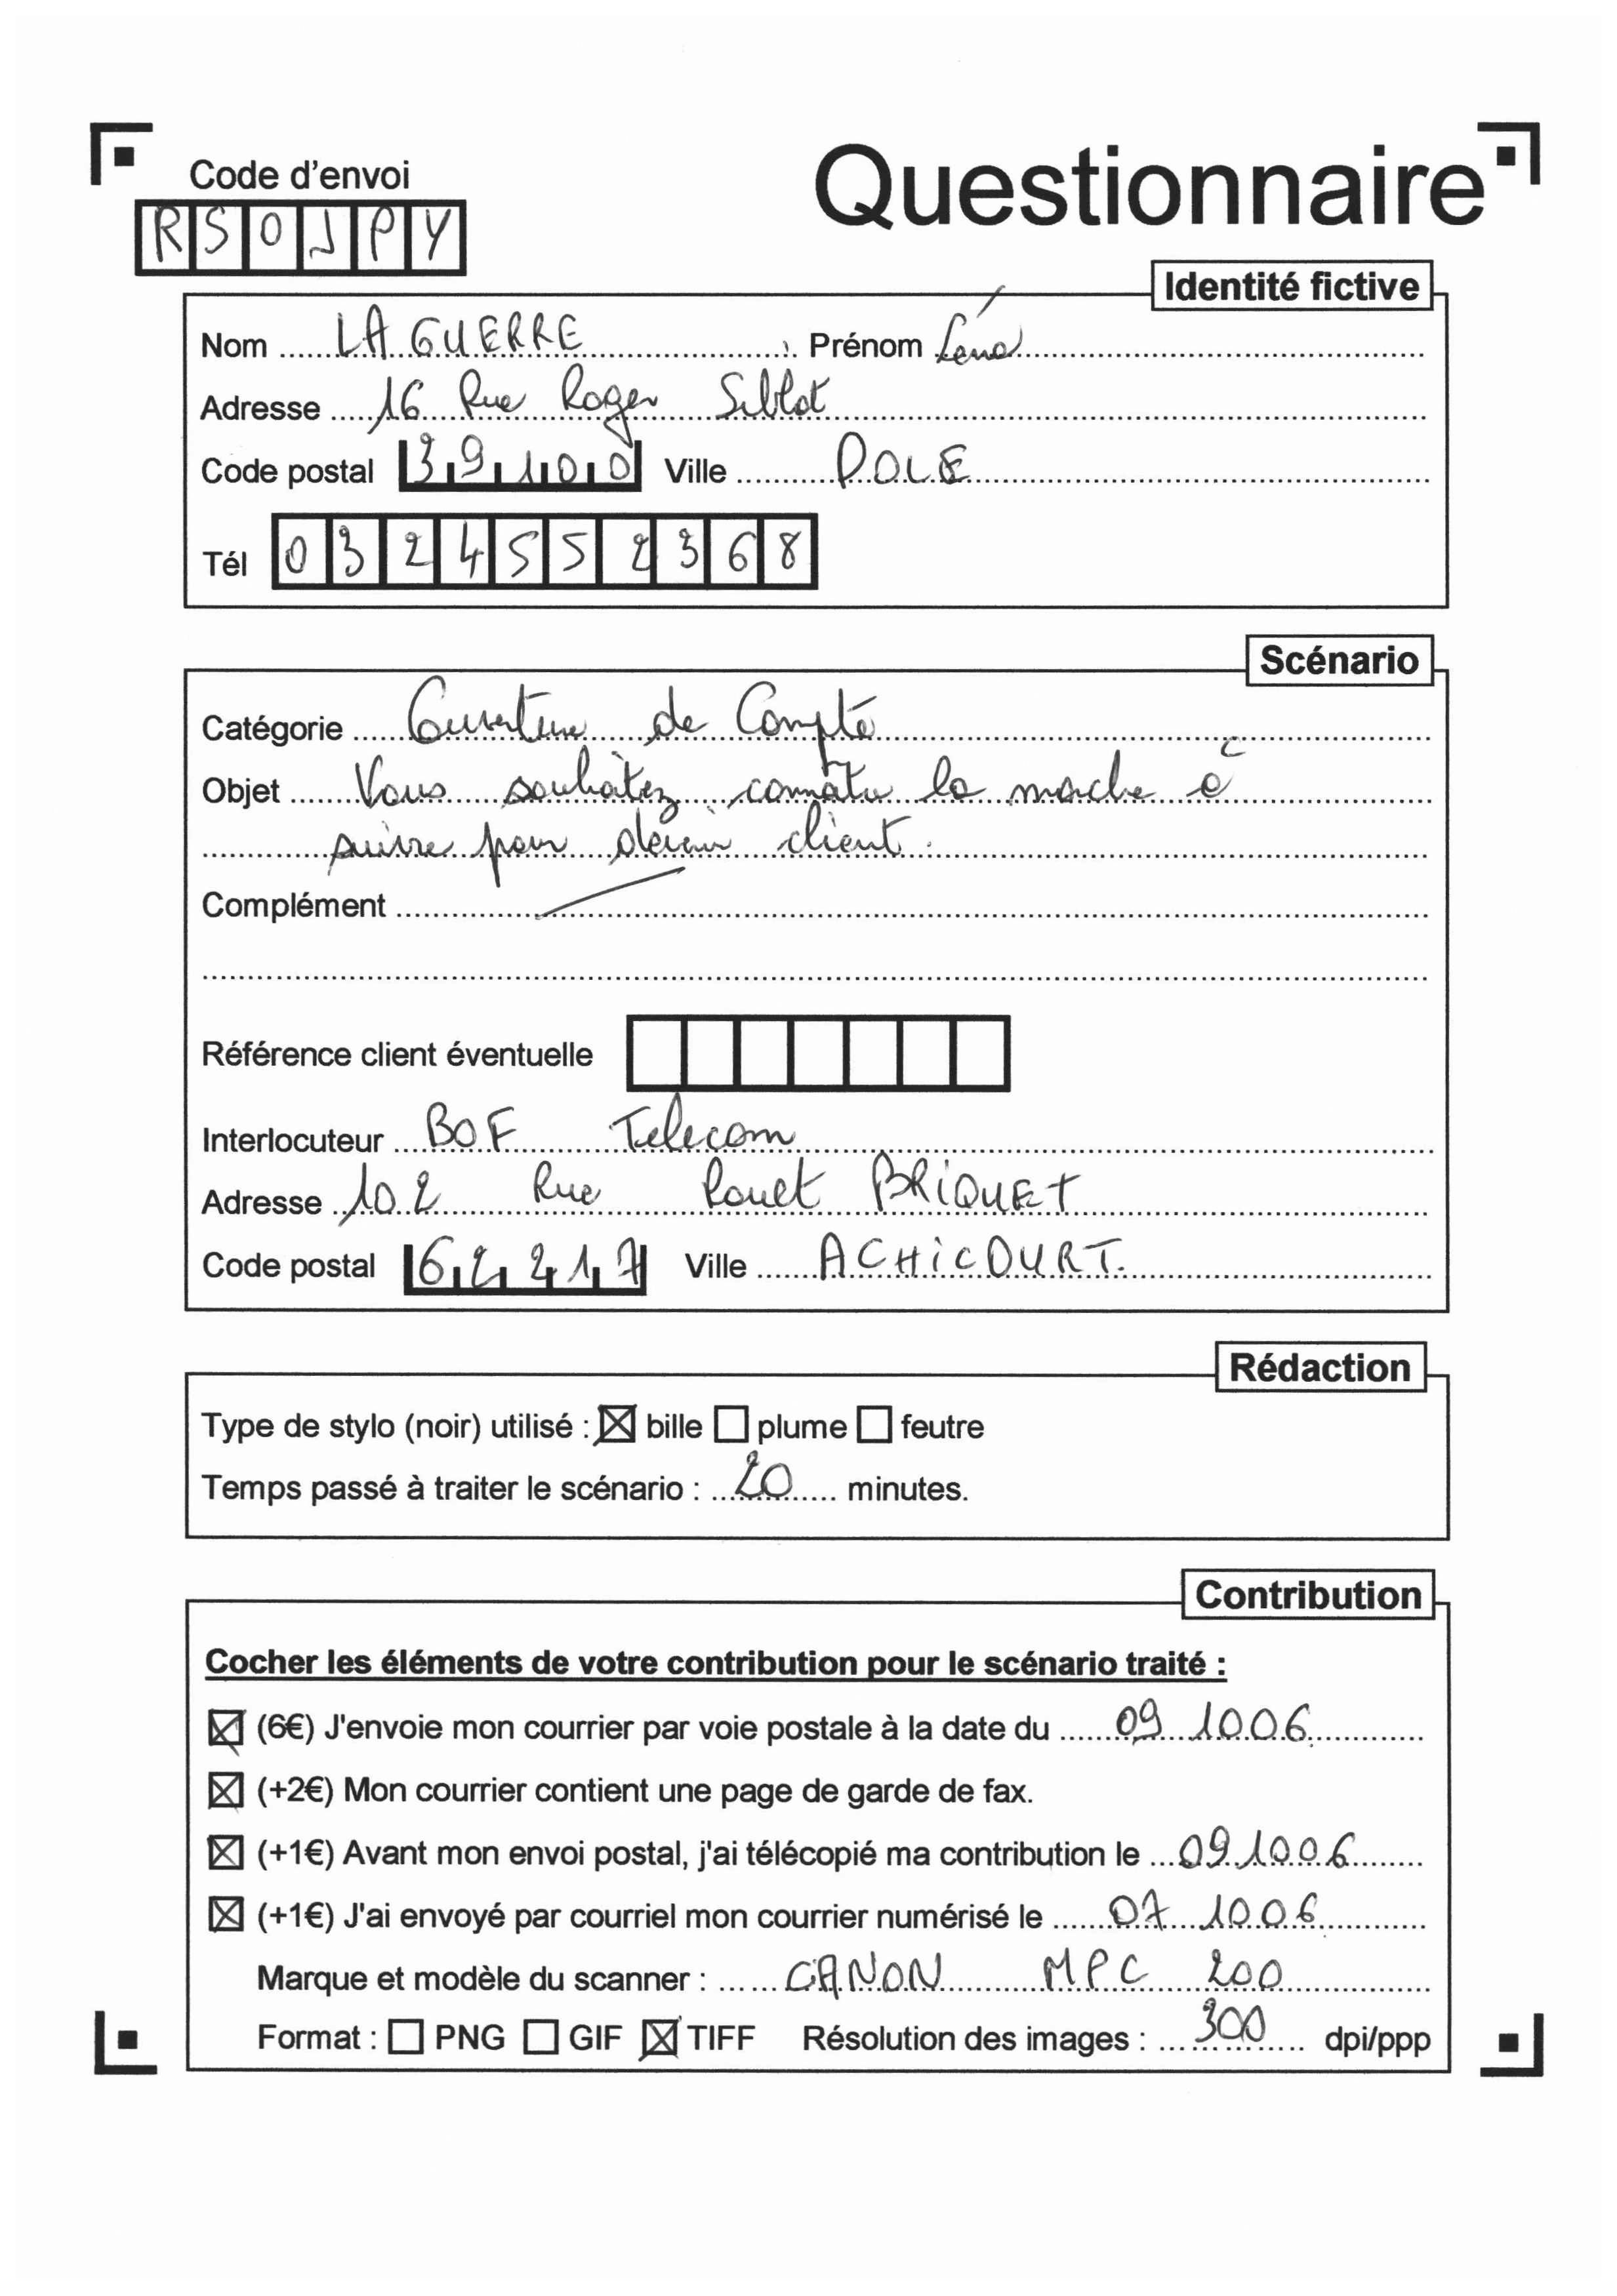 Code d'envoi
Questionnaire
RSOJPY
Identité fictive
Nom LAGUERRE Prénom Léna
Adresse 16 Rue Roger Siblot
Code postal 39100 Ville DOLE
Tél 0324552368
Scénario
Catégorie Ouverture de Compte
Objet Vous souhaitez connaître la marche à
suivre pour devenir client.
Complément
Référence client éventuelle
Interlocuteur BOF Telecom
Adresse 102 Rue BRIQUET
Code postal 62217 Ville ACHICOURT.
Rédaction
Type de stylo (noir) utilisé : ☒ bille ☐ plume ☐ feutre
Temps passé à traiter le scénario : 20 minutes.
Contribution
Cocher les éléments de votre contribution pour le scénario traité :
☒ (6€) J'envoie mon courrier par voie postale à la date du 09 10 06
☒ (+2€) Mon courrier contient une page de garde de fax.
☒ (+1€) Avant mon envoi postal, j'ai télécopié ma contribution le 09 10 06
☒ (+1€) J'ai envoyé par courriel mon courrier numérisé le 07 10 06
Marque et modèle du scanner : CANON MPC 200
Format : ☐ PNG ☐ GIF ☒ TIFF Résolution des images : 300 dpi/ppp